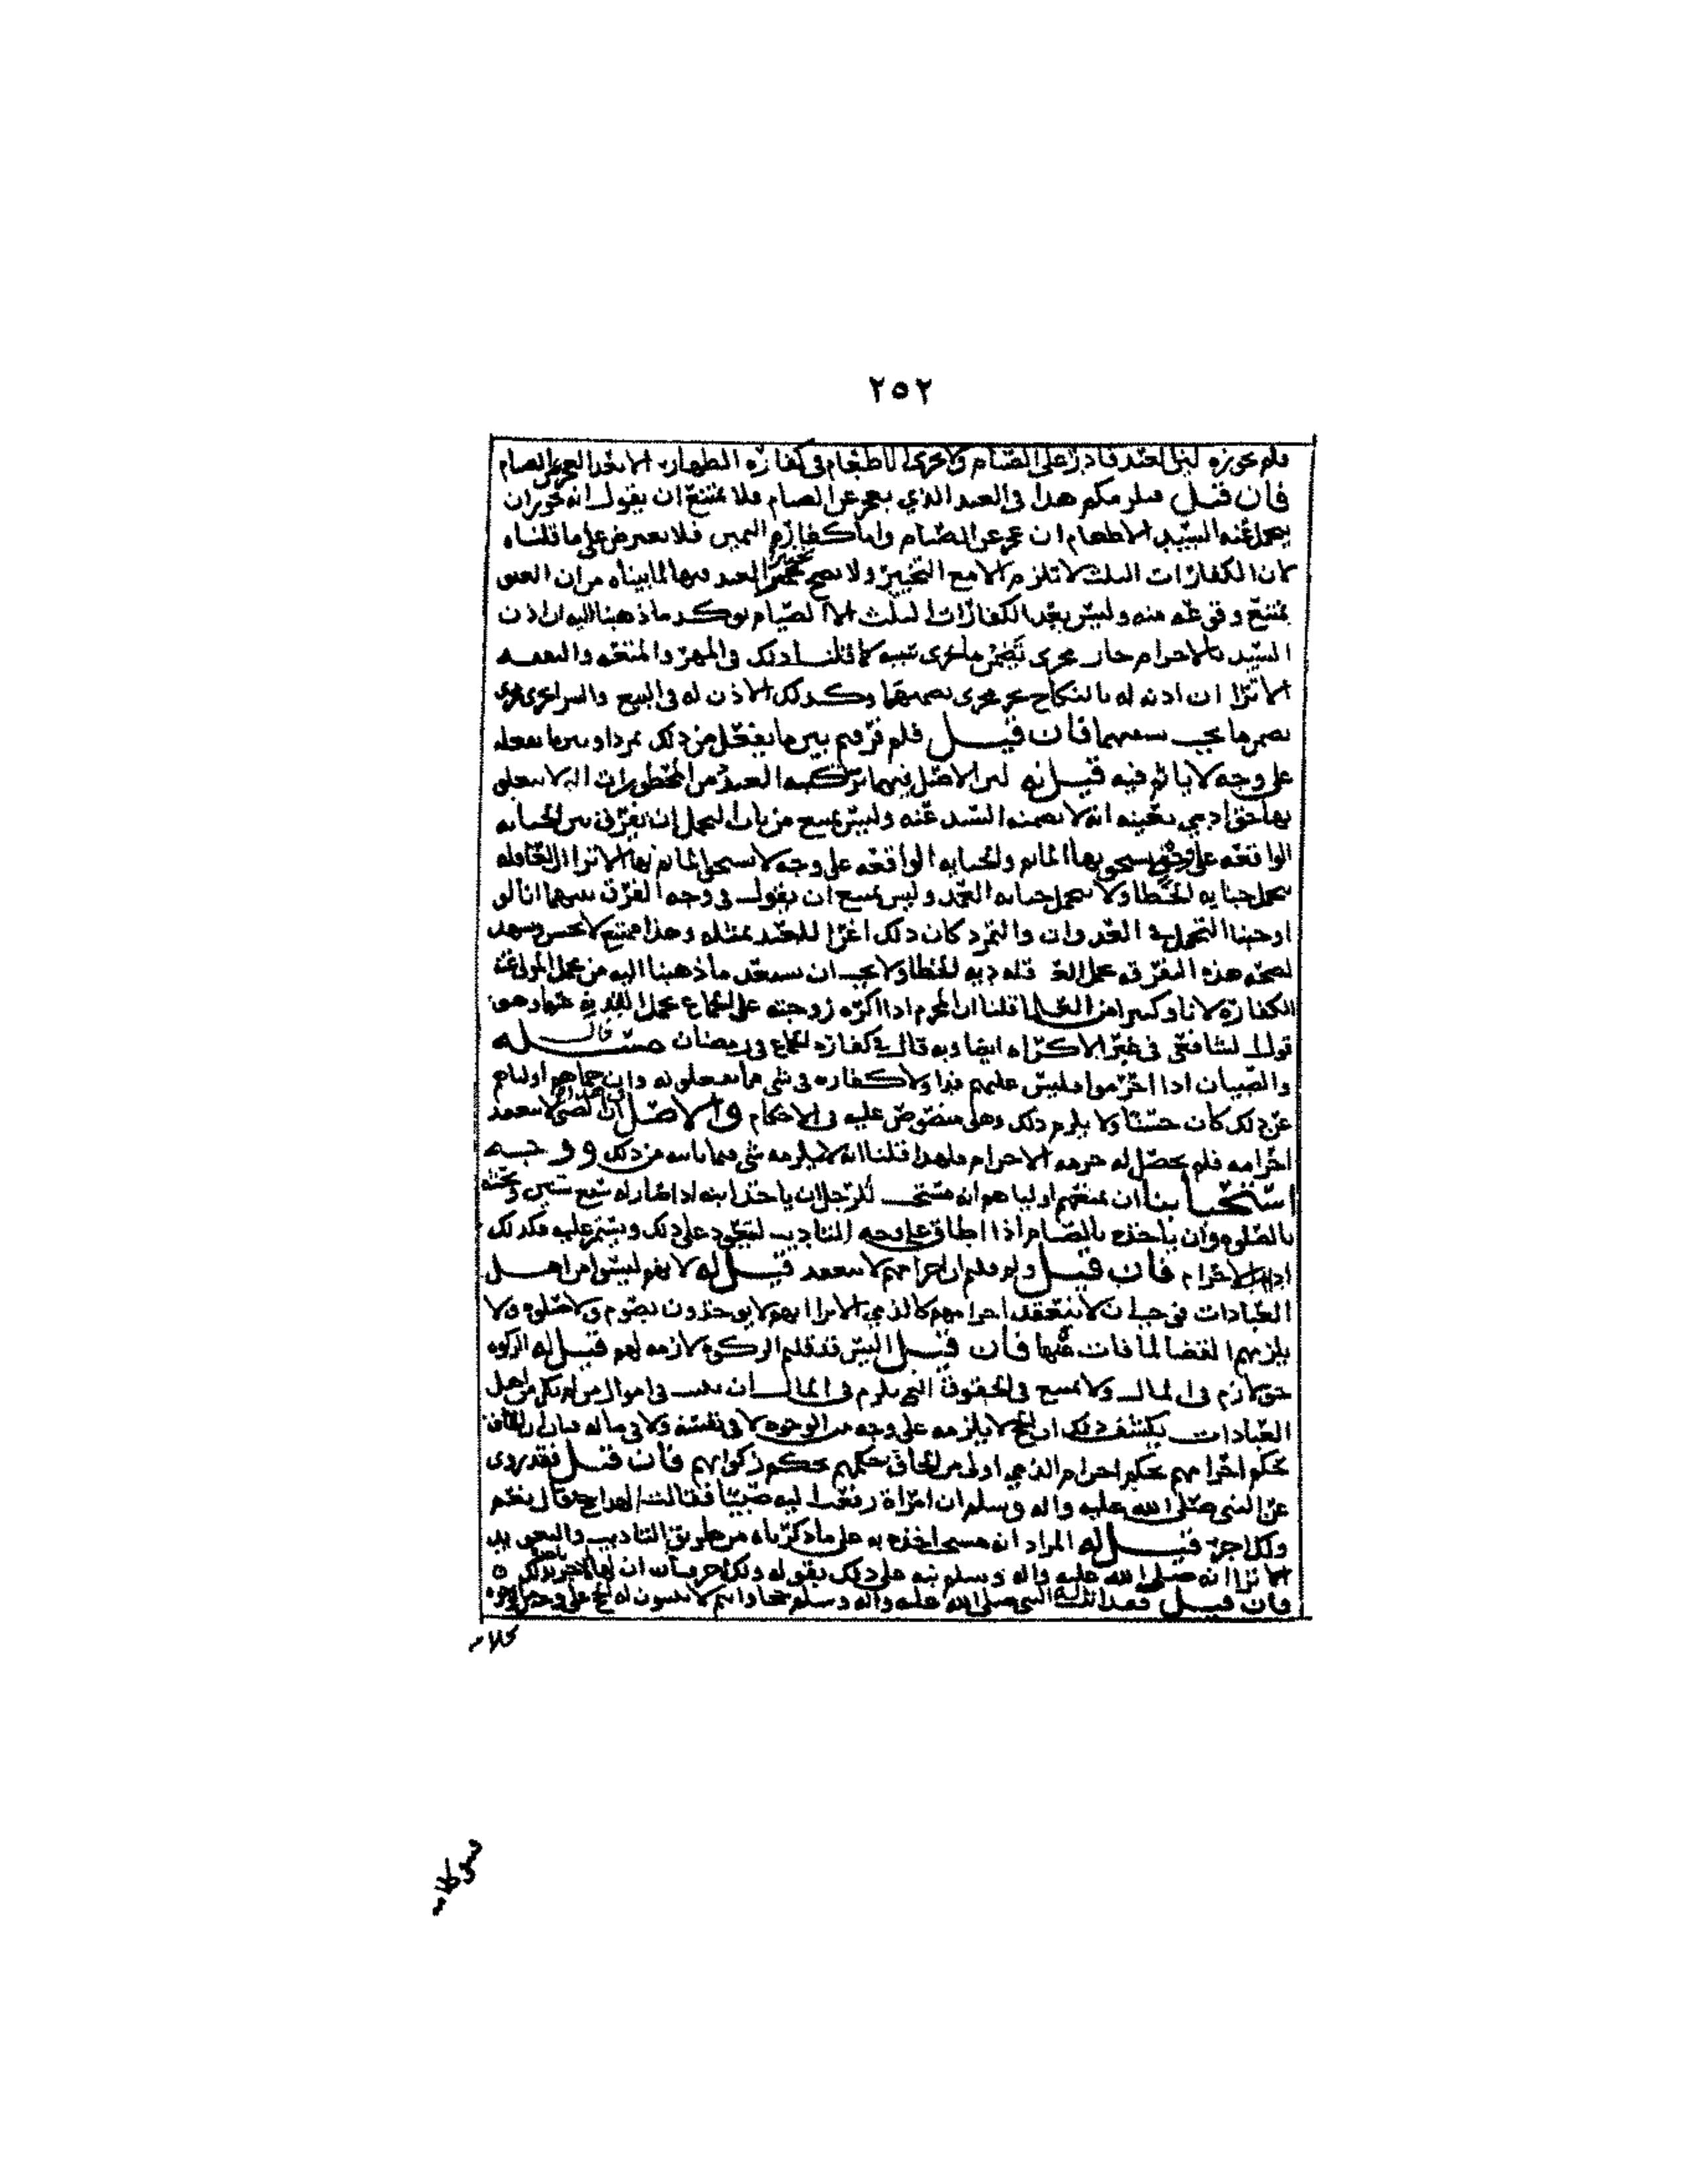 ٢٥٢
فلم يجوزه لمن لعبد قادر على الصيام ولا يجزي الاطعام في كفارة الظهار الا بعد العجز عن الصيام
فان قيل هذا في العبد الذي يعجز عن الصيام فلا يمتنع ان يقول انه يجوز ان
يتحمل عنه السيد الاطعام ان عجز عن الصيام واما كفارة اليمين فلا يعترض على ما قلناه
لان الكفارات الثلث لا تلزم الا مع التخيير ولا يصح تخيير العبد فيها لما بيناه من ان العتق
يمتنع وقوعه منه وليس بعد الكفارات الثلث الا الصيام يوكد ما ذهبنا اليه ان اذن
السيد بالاحرام جار مجرى تضمن ما جرى سببه كما قلنا ذلك في المهر والمتعة والنفقة
الا ترا ان اذنه له بالنكاح جرى مجرى تضمنها وكذلك الاذن له في البيع والشرا جرى مجرى
تضمن ما يجب بسببهما فان قيل فلم فرقتم بين ما يفعل من ذلك تمردا وبين ما يفعله
على وجه لا ياثم فيه قيل له لان الاصل فيما يرتكبه العبد من المحظورات التي لا يتعلق
بها حق ادمي بعينه انه لا يضمنه السيد عنه وليس يمتنع من باب التحمل ان يفرق بين الجناية
الواقعة على وجه يستحق بها الماثم والجناية الواقعة على وجه لا يستحق الماثم بها الا ترا ان العاقلة
تتحمل جناية الخطا ولا تتحمل جناية العمد وليس يمتنع ان يقول في وجه الفرق بينهما انا لو
اوجبنا التحمل في العدوان والتمرد كان ذلك اغرا للعبد بمثله وهذا ممتنع لا يحسن ويشهد
لصحة هذه التفرقة تحمل العاقلة دية الخطا ولا يجب ان يستبعد ما ذهبنا اليه من تحمل المولى عنه
الكفارة لانا وكثيرا من العلما قلنا ان المحرم اذا اكره زوجته على الجماع تحمل الفدية عنها وهو
قول الشافعي في غير الاكراه ايضا وبه قال في كفارة الجماع في رمضان مسئلة قال
والصبيان اذا احرموا فليس عليهم فدا ولا كفارة في شي مما يفعلونه وان حماهم اولياهم
عن ذلك كان حسنا ولا يلزم ذلك وهي منصوص عليه في الاحكام والاصل ان الصبي لا ينعقد
احرامه فلم يحصل له حرمة الاحرام فلهذا قلنا انه لا يلزمه شي فيما ياتيه من ذلك ووجه
استحبابنا ان يمنعهم اولياهم انه مستحب للرجل ان ياخذ ابنه اذا صار له سبع سنين
بالصلوة وان ياخذه بالصيام اذا اطاق على وجه التاديب ليتعود على ذلك ويستمر عليه فكذلك
اداب الاحرام فان قيل ولم قلتم ان احرامهم لا ينعقد قيل له لانهم ليسوا من اهل
العبادات فوجب ان لا ينعقد احرامهم كالذمي الا ترا انهم لا يوخذون بصوم ولا صلوة ولا
يلزمهم القضا لما فات منها فان قيل اليس قد قلتم الزكوة لازمة لهم قيل له الزكوة
حق لازم في المال ولا يمتنع في الحقوق التي تلزم في المال ان تجب في اموال من لم يكن من اهل
العبادات يكشف ذلك ان الحج لا يلزمه على وجه من الوجوه لا في نفسه ولا في ماله فبان ان الحاق
حكم احرامهم بحكم احرام الذمي اولى من الحاق حكمهم بحكم زكواتهم فان قيل فقد روي
عن النبي صلى الله عليه واله وسلم ان امراة رفعت اليه صبيا فقالت الهذا حج فقال نعم
ولك اجر قيل له المراد انه يستحب اخذه به على ما ذكرناه من طريق التاديب والتعويد
الا ترا انه صلى الله عليه واله وسلم نبه على ذلك بقوله ولك اجر فبان ان لها الاجر بذلك ه
فان قيل فقد اثبت له النبي صلى الله عليه واله وسلم حجا وانتم لا تثبتون له الحج على وجه من الوجوه